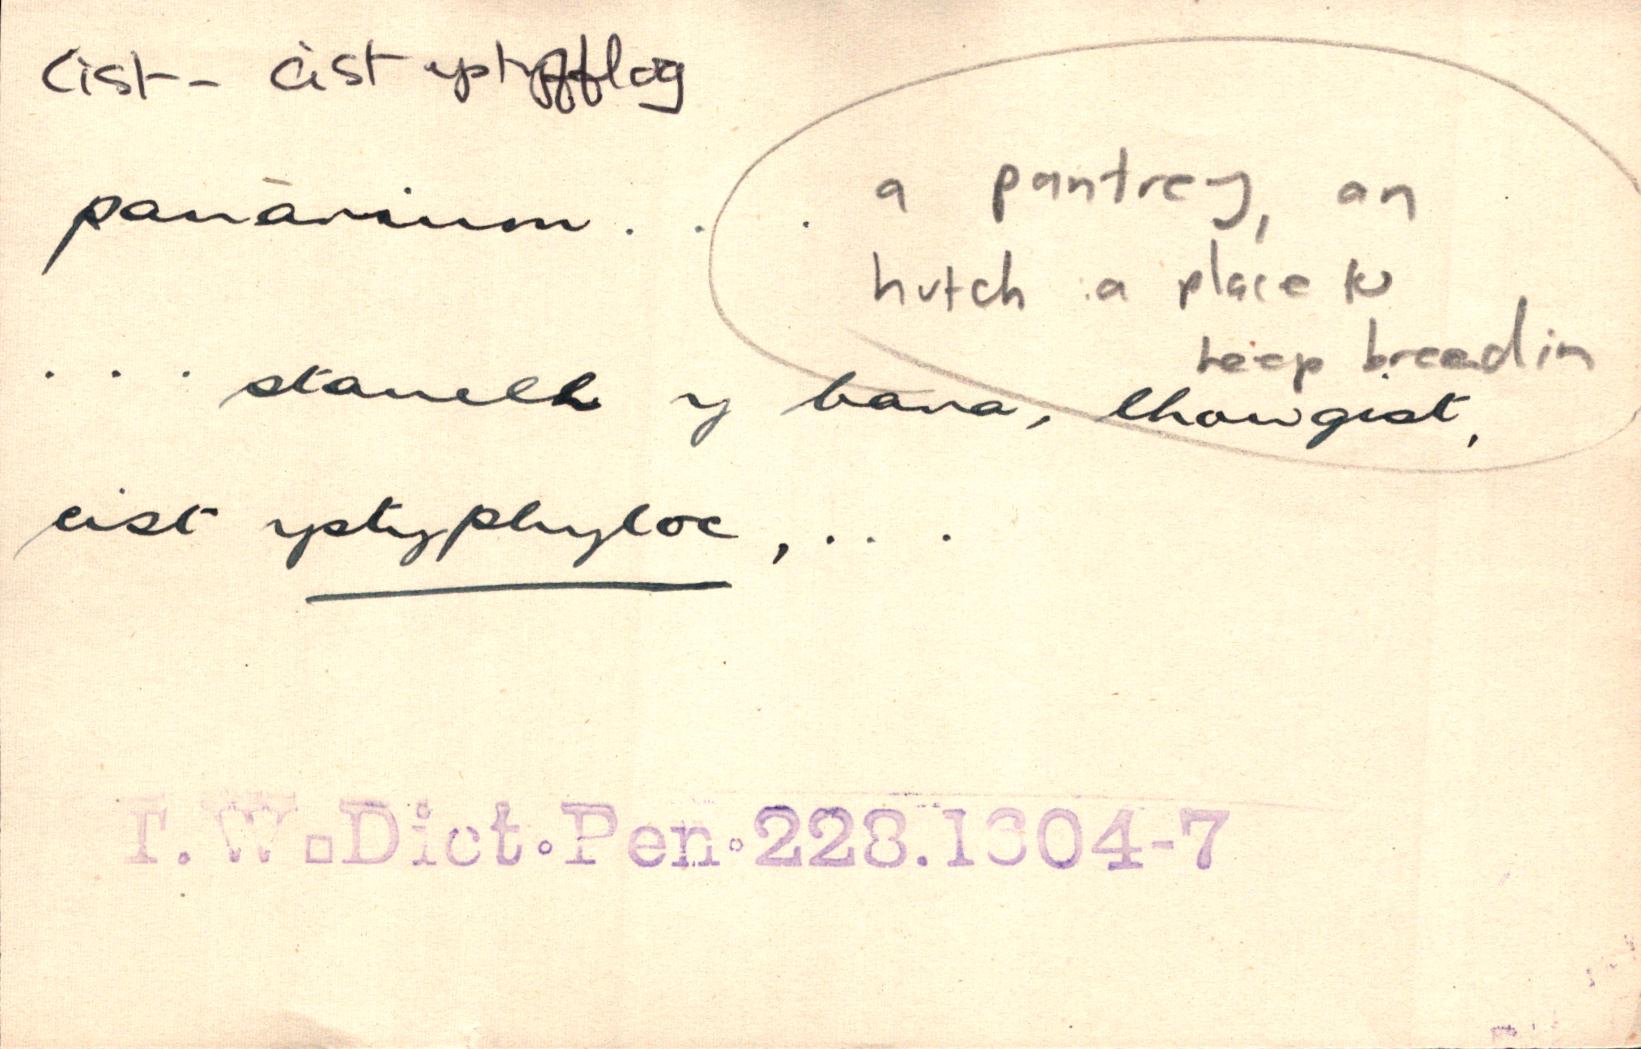 cist - cist ystyfflog
panārium . . .
a pantrey, an
hutch a place to
keep breed in
. . . stauell y bara, lhawgist,
cist ystyphyloc, . . .
T.W. Dict. Pen. 228.1304-7